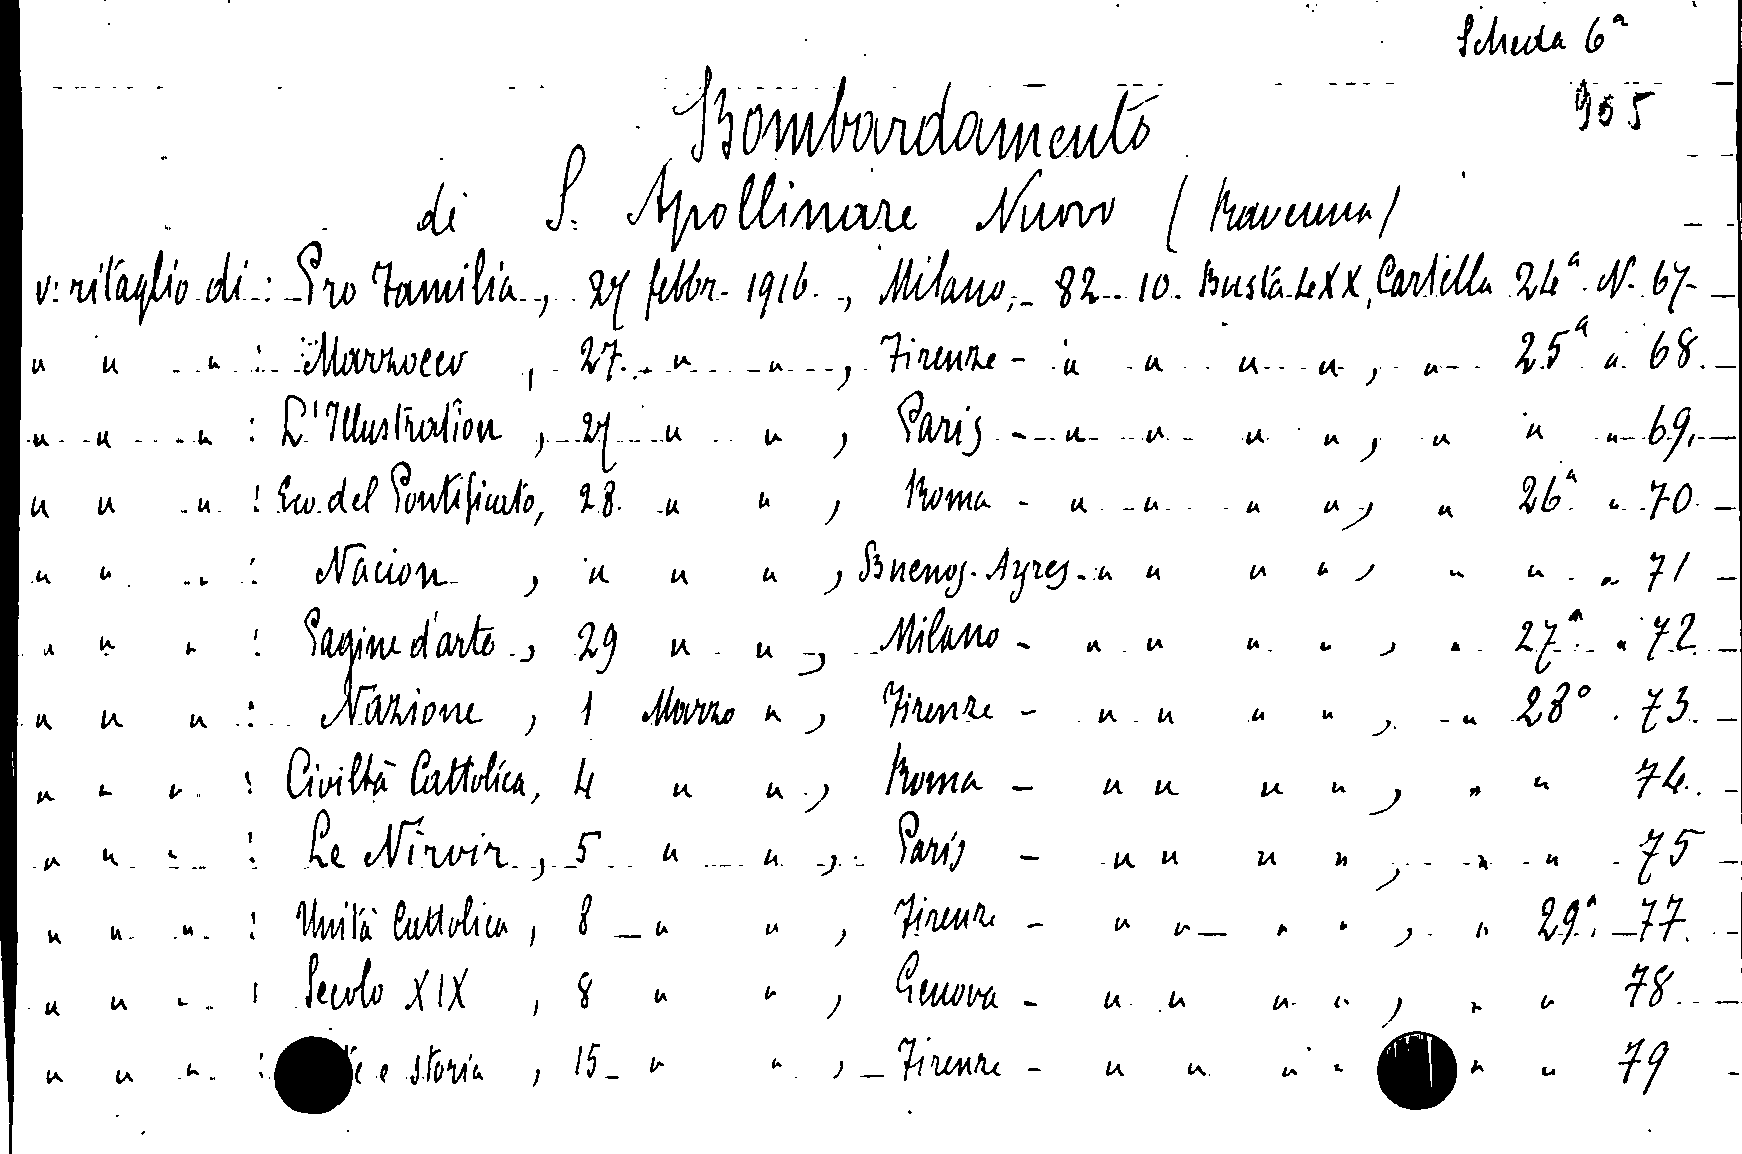 Scheda 6ª
905
Bombardamento
di S. Apollinare Nuovo (Ravenna)
v: ritaglio di: Pro Familia, 27 febbr. 1916., Milano, - 82. 10. Busta LXX, Cartella 24ª. N. 67-
" " " : Marzocco, 27. " ", Firenze - " " " ", " 25ª " 68.
" " " : L'Illustration, 27 " ", Paris - " " " ", " " " 69.
" " " : Eco del Pontificato, 28. " ", Roma - " " " ", " 26ª " 70
" " " : Nacion, " " ", Buenos-Ayres - " " " ", " " " 71
" " " : Pagine d'arte, 29 " ", Milano - " " " ", " 27ª " 72
" " " : Nazione, 1 Marzo ", Firenze - " " " ", " 28° . 73.
" " " : Civiltà Cattolica, 4 " ", Roma - " " " ", " " 74.
" " " : Le Miroir, 5 " ", Paris - " " " ", " " 75
" " " : Unità Cattolica, 8 " ", Firenze - " " " ", " 29ª. 77.
" " " : Secolo XIX, 8 " ", Genova - " " " ", " " 78
" " " : e storia, 15 " ", Firenze - " " " " " " 79